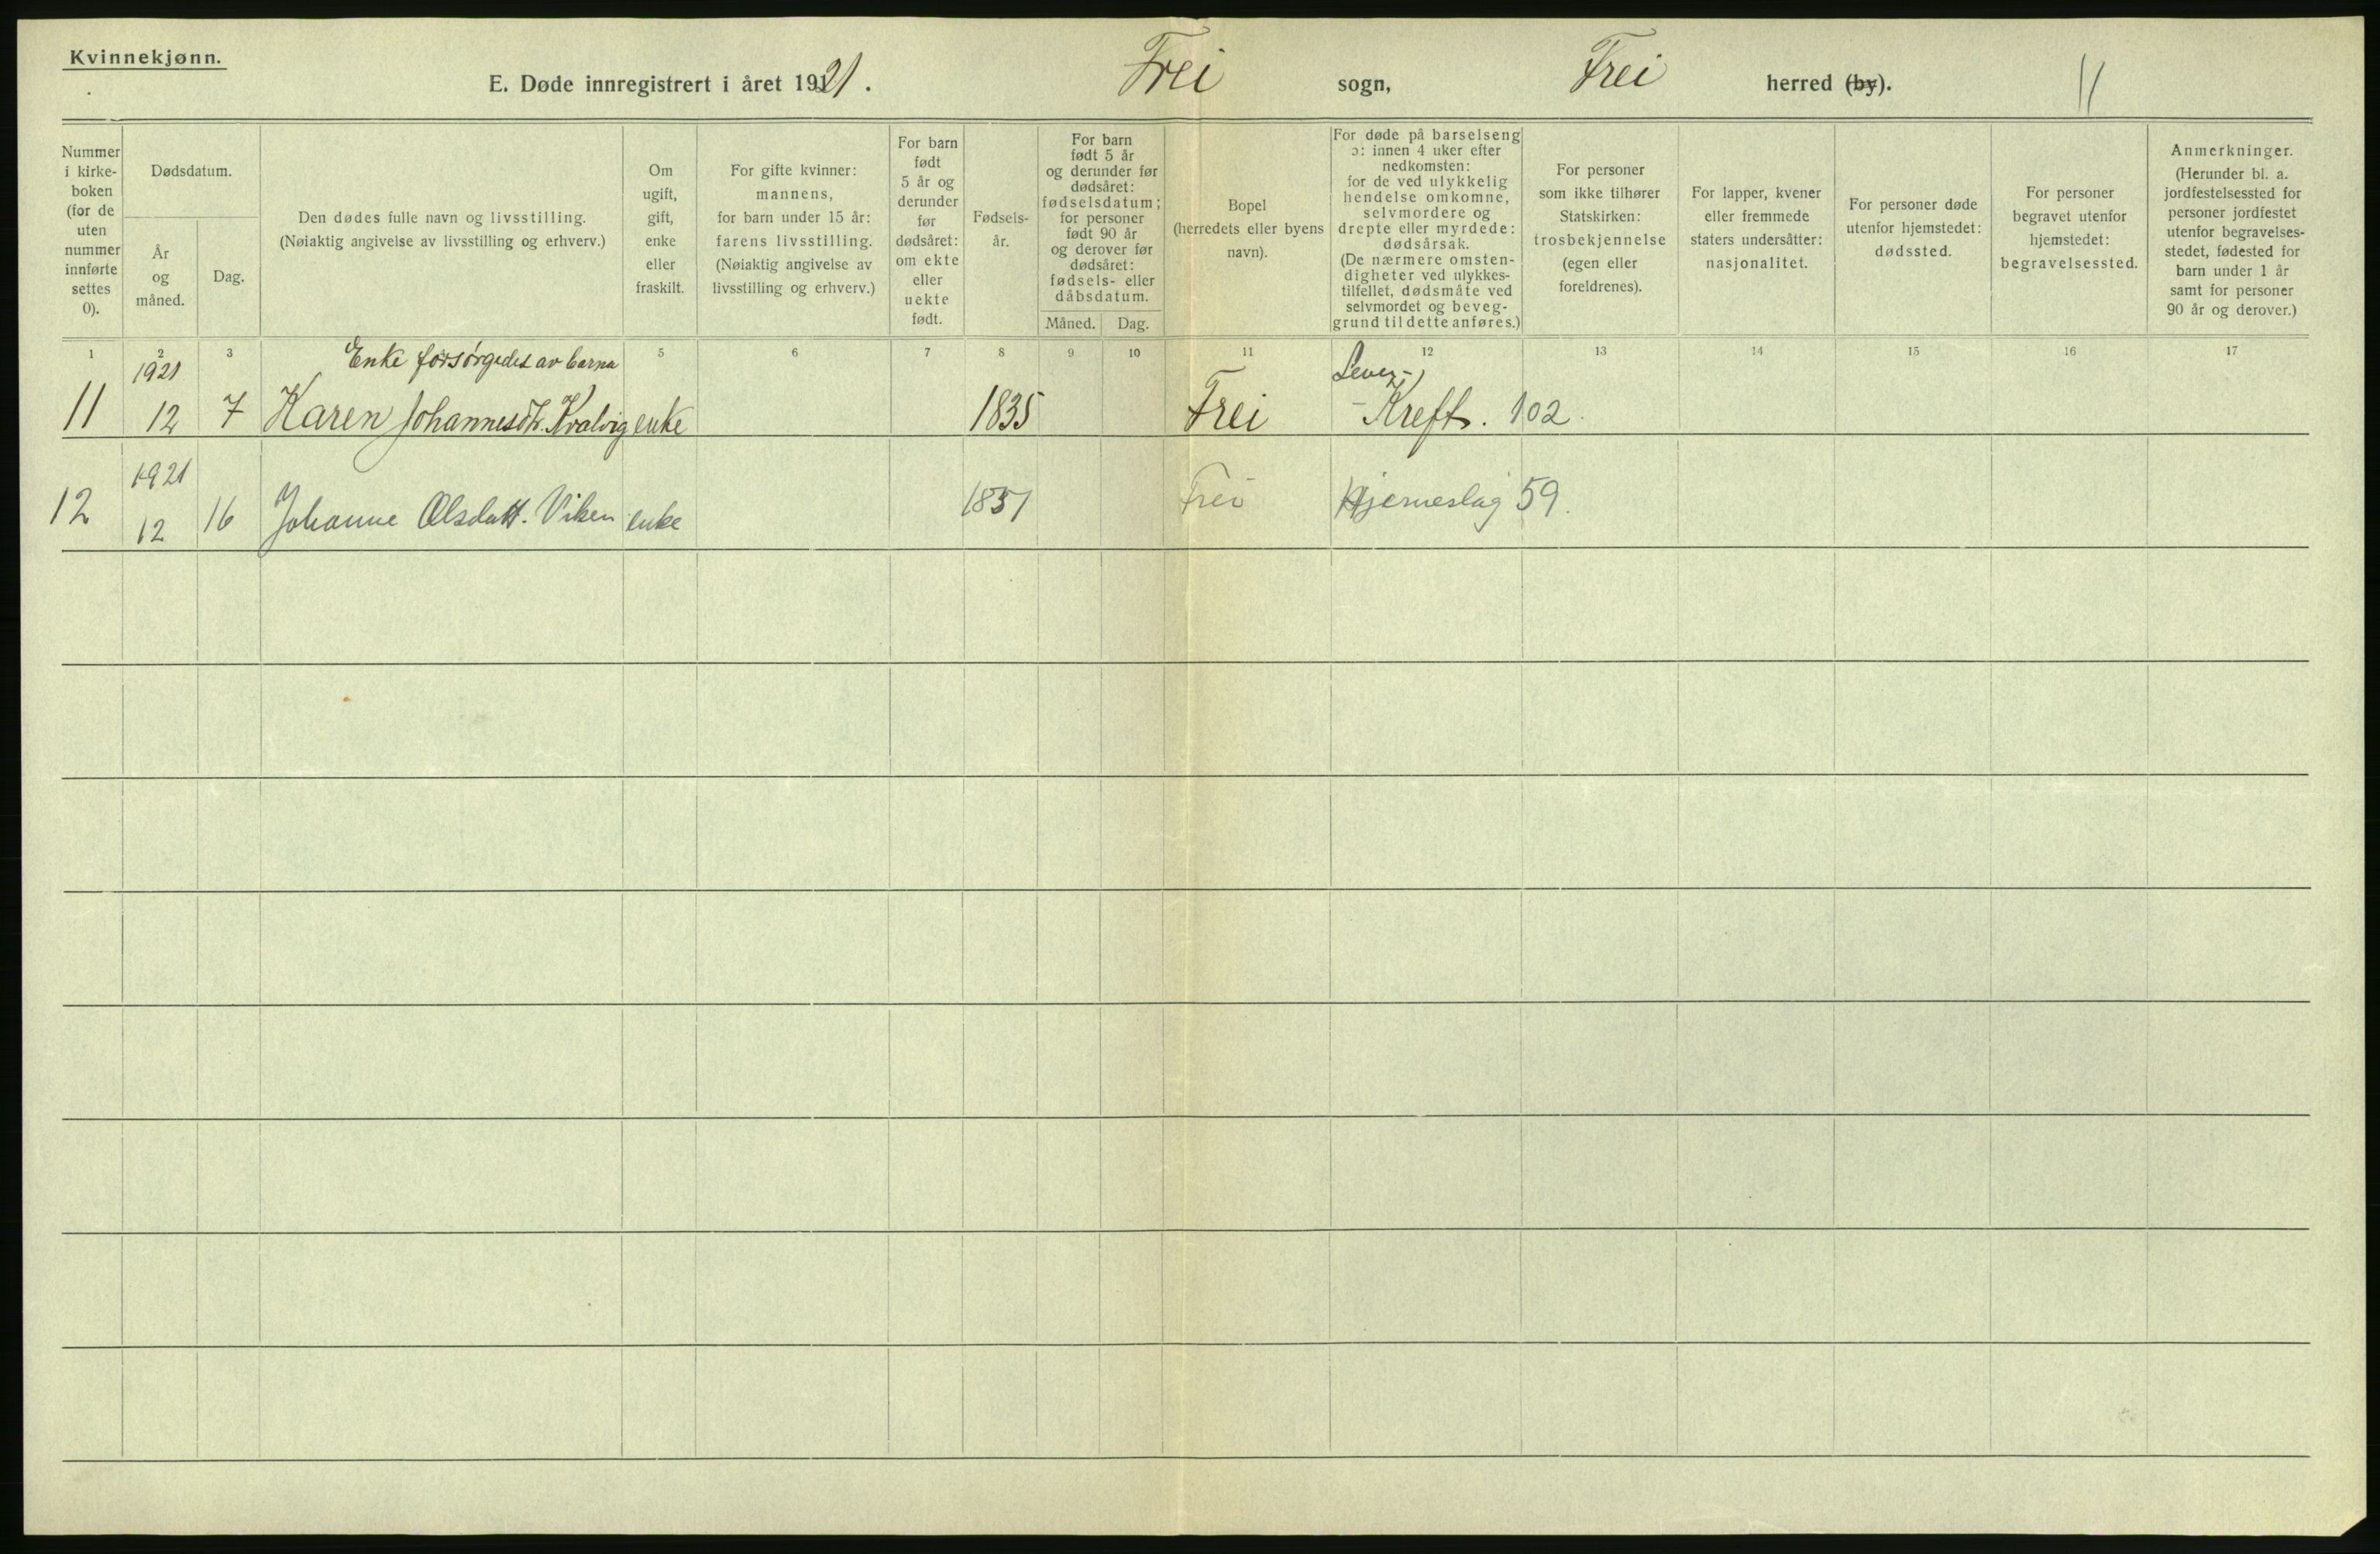 Kvinnekjønn.
E. Døde innregistrert i året 1921. Frei sogn, Frei herred (by). 11
Nummer
i kirke-
boken
(for de
uten
nummer
innførte
settes
0).
Dødsdatum.
År
og
måned.
Dag.
Den dødes fulle navn og livsstilling.
(Nøiaktig angivelse av livsstilling og erhverv.)
Om
ugift,
gift,
enke
eller
fraskilt.
For gifte kvinner:
mannens,
for barn under 15 år:
farens livsstilling.
(Nøiaktig angivelse av
livsstilling og erhverv.)
For barn
født
5 år og
derunder
før
dødsåret:
om ekte
eller
uekte
født.
Fødsels-
år.
For barn
født 5 år
og derunder før
dødsåret:
fødselsdatum;
for personer
født 90 år
og derover før
dødsåret:
fødsels- eller
dåbsdatum.
Måned. Dag.
Bopel
(herredets eller byens
navn).
For døde på barselseng
ɔ: innen 4 uker efter
nedkomsten:
for de ved ulykkelig
hendelse omkomne,
selvmordere og
drepte eller myrdede:
dødsårsak.
(De nærmere omsten-
digheter ved ulykkes-
tilfellet, dødsmåte ved
selvmordet og beveg-
grund til dette anføres.)
For personer
som ikke tilhører
Statskirken:
trosbekjennelse
(egen eller
foreldrenes).
For lapper, kvener
eller fremmede
staters undersåtter:
nasjonalitet.
For personer døde
utenfor hjemstedet:
dødssted.
For personer
begravet utenfor
hjemstedet:
begravelsessted.
Anmerkninger.
(Herunder bl. a.
jordfestelsessted for
personer jordfestet
utenfor begravelses-
stedet, fødested for
barn under 1 år
samt for personer
90 år og derover.)
1 2 3 5 6 7 8 9 10 11 12 13 14 15 16 17
1921 Enke forsørgedes av barna Lever-
11 12 7 Karen Johannesdtr. Kvalvig enke 1835 Frei -Kreft. 102.
1921
12 12 16 Johanne Olsdatt. Viken enke 1831 Frei Hjerneslag 59.